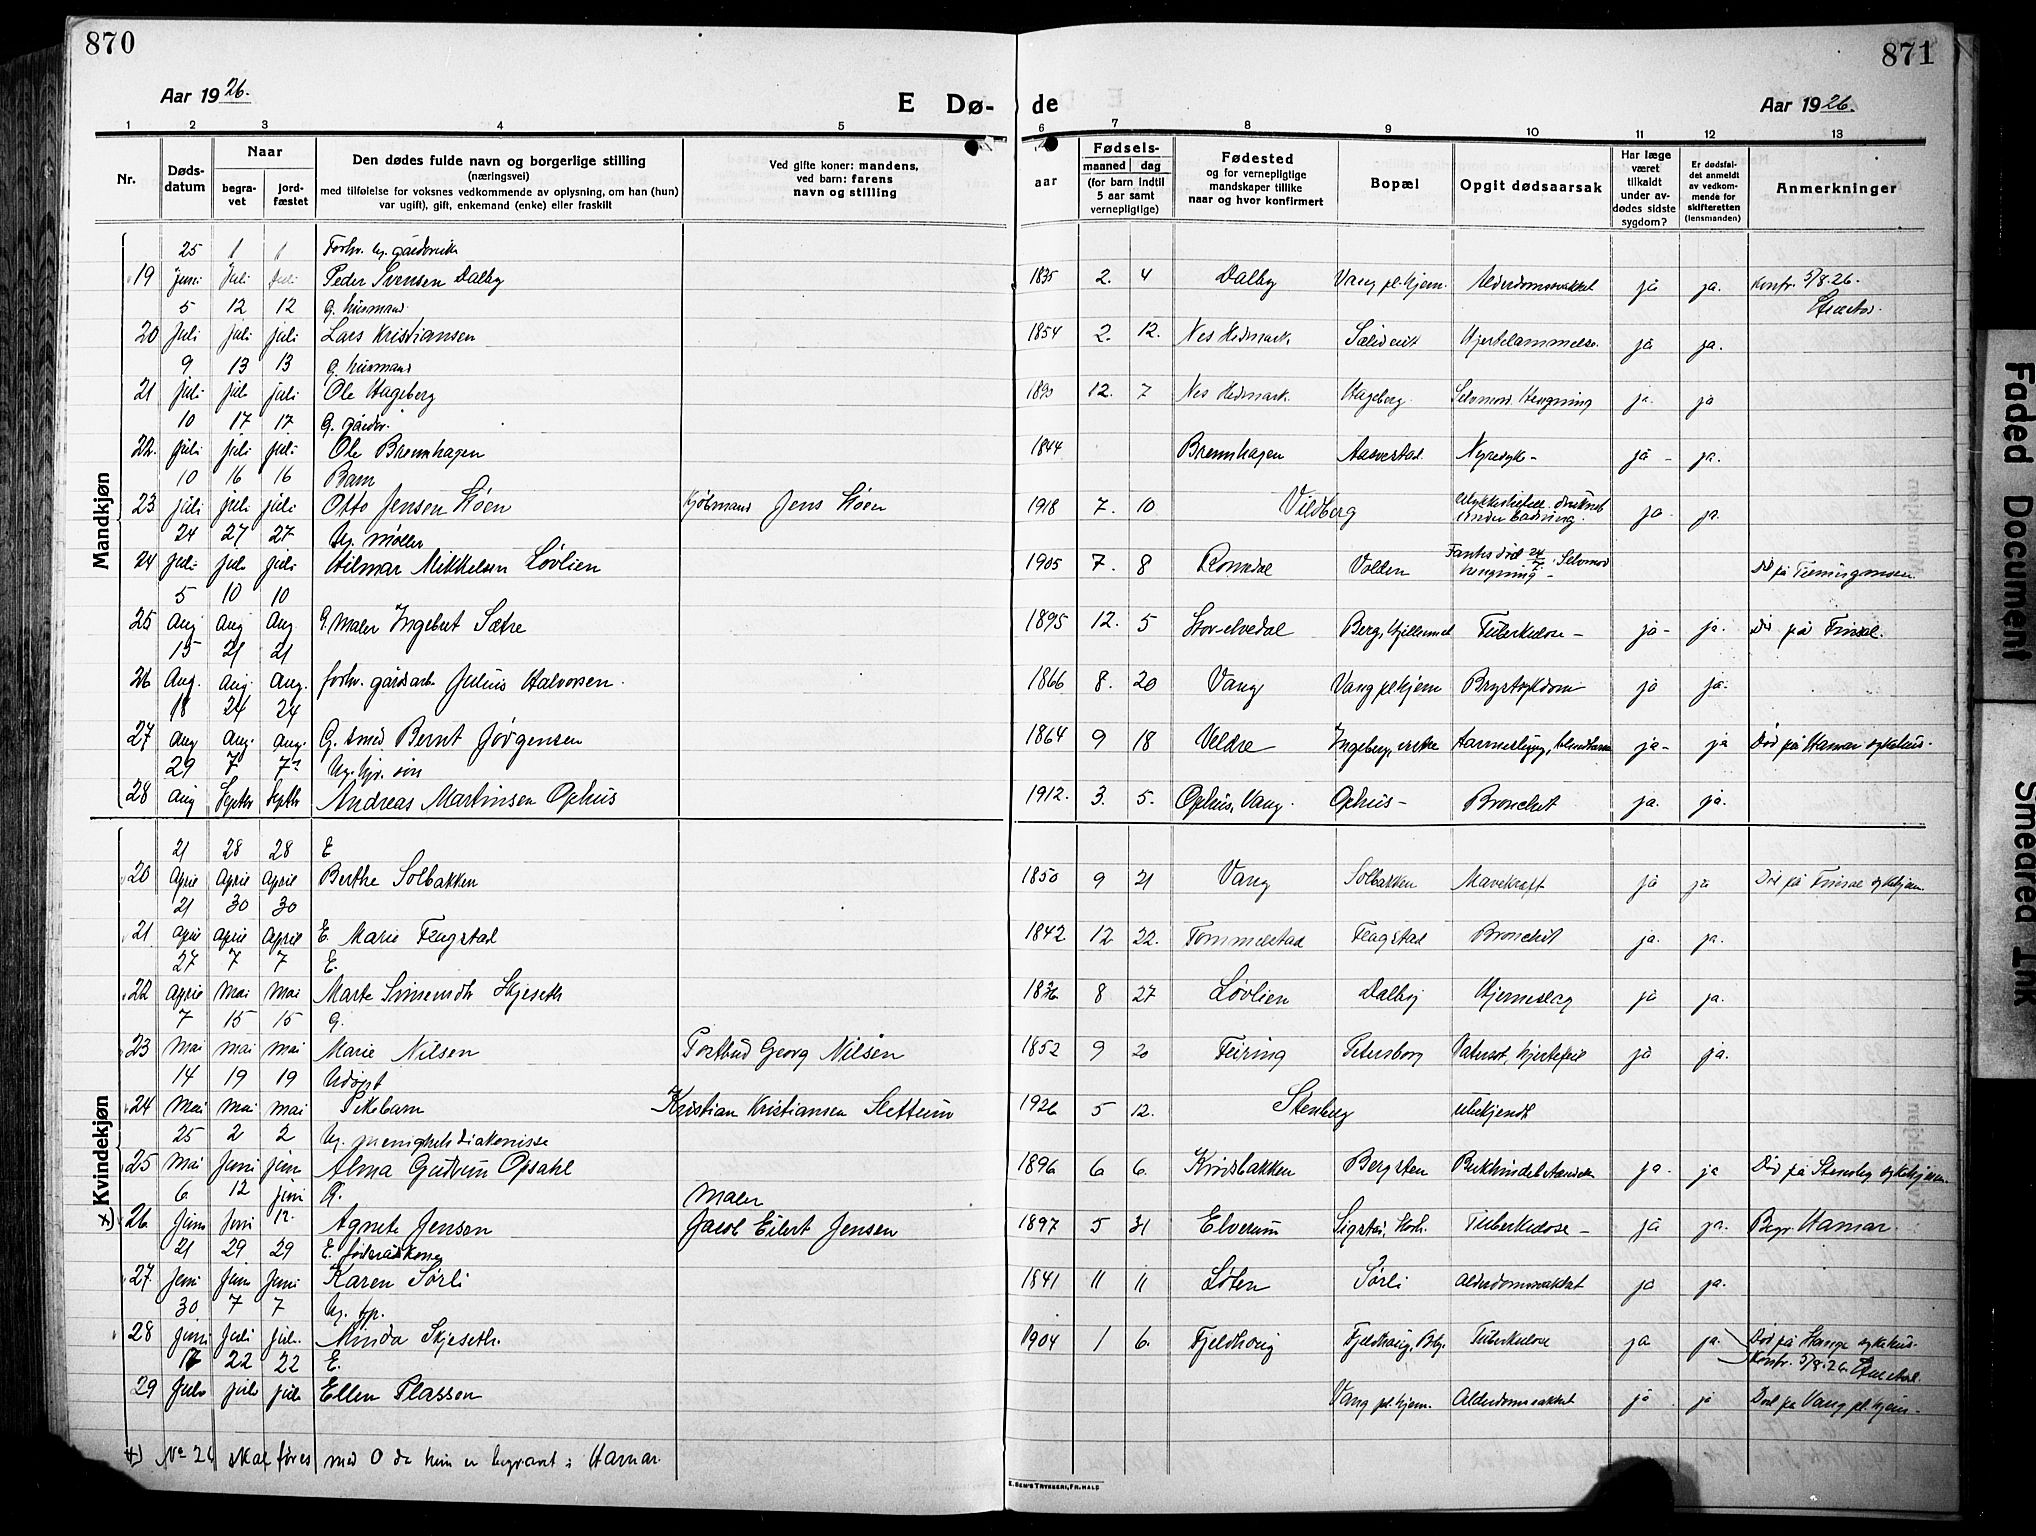 870
871
Aar 1926.
E Dø-
de
Aar 1926.
1 2 3 4 5 6 7 8 9 10 11 12 13
Nr.
Døds-
datum
Naar
begra-
vet
jord-
fæstet
Den dødes fulde navn og borgerlige stilling
(næringsvei)
med tilføielse for voksnes vedkommende av oplysning, om han (hun)
var ugift), gift, enkemand (enke) eller fraskilt
Ved gifte koner: mandens,
ved barn: farens
navn og stilling
Fødsels-
aar
maaned dag
(for barn indtil
5 aar samt
vernepligtige)
Fødested
og for vernepligtige
mandskaper tillike
naar og hvor konfirmert
Bopæl
Opgit dødsaarsak
Har læge
været
tilkaldt
under av-
dødes sidste
sygdom?
Er dødsfal-
det anmeldt
av vedkom-
mende for
skifteretten
(lensmanden)
Anmerkninger
Mandkjøn
25 1 1 Forhv.
19 Juni Juli Juli Peder Svensen Dalby 1835 2. 4 Dalby Vang pl. hjem. Alderdomssvakhet ja ja. Konfr. 5/8.26.
5 12 12 G. husmand
20 Juli juli juli Lars Kristiansen 1854 2. 12. Nes Hedmark. Hjertelammelse. ja ja.
9 13 13 G. husmand
21 juli juli juli Ole Hageberg 12. 7 Nes Hedmark. Hageberg. Selvmord Hengning ja. ja
10 17 17 G. gårdbr.
22. juli juli juli Ole Brennhagen 1844 Brennhagen Aasvestad Nyresyke- ja - ja.
10 16 16 Barn
23 juli juli juli Otto Jensen Støen Kjøbmand Jens Støen 1918 7. 10 Vildberg Ulykkestilfelle druknet under badning. ja. ja.
24 27 27 Ug. møller
24 juli juli juli Hilmar Mikkelsen Løvlien 1905 7. 8 Romedal Vollen Fantes død 24/7. Selvmord hengning -
5 10 10
25 Aug Aug Aug. G. Maler Ingebret Sætre 1895 12. 5 Storelvedal Berg, Tuberkulose - ja - ja. Død på Finsal.
15 21 21
26 Aug. Aug. Aug. forhv. gårdsarb. Julius Halvorsen. 1866 8. 20 Vang Vang pl. hjem Brystsykdom ja ja.
18 24 24
27 Aug Aug. Aug. G. smed Bernt Jørgensen 1864 9 18 Veldre ja - ja Død på Hamar sykehus.
29 7 7 Ug. søn
28 Aug Septbr Septbr Andreas Martinsen Ophus 1912. 3. 5. Ophus, Vang. Ophus - Bronchit ja. ja.
Kvindekjøn
21 28 28 E
20 April April April Berthe Solbakken 1850 9 21 Vang Solbakken Mavekræft ja ja Død på Finsal sykehjem
21 30 30
21 April April April E. Marie Flagstad 1842 12 22. Tommelstad Flagstad Bronchit ja. ja.
27 7 7 E.
22 April Mai Mai Marte Simensdtr Skjeseth 1836 8 27 Løvlien Dalby Hjerneslag ja ja.
7 15 15 G.
23 Mai mai mai Marie Nilsen Postbud Georg Nilsen 1852 9 20 Feiring Petersborg Vatersot, hjertefeil ja ja.
14 19 19 Udøpt
24 Mai Mai mai Pikebarn Kristian Kristiansen Slettum 1926 5 12. Stenberg ubekjendt
25 2 2 Ug. menighetsdiakonisse
25 Mai Juni juni Alma Gudrun Opsahl 1896 6 6. Kvisbakken Bergsten ja. ja Død på Stensby sykehjem
6 12 juni G. Maler
x) 26 Juni Juni 12. Agnete Jensen Jacob Eilert Jensen 1897 5 31 Elverum Tuberkulose - ja ja. Begr. Hamar.
21 29 29 E.
27. Juni Juni Juni Karen Sørli 1841 11 11 Løten Sørli Alderdomssvakhet ja ja.
30 7 7 Ug. tjp.
28 Juni Juli juli Minda Skjeseth. 1904 1 6. Fjeldhoug Fjeldhaug, Tuberkulose ja ja. Død på Stange sykehus.
17 22 22 E. Konfr. 5/8.26.
29 Juli juli juli Ellen Plassen Vang pl. hjem. Alderdomssvakhet ja ja Død på Vang pl. hjem -
x) No 26 skal føres med 0 da hun er begravet i Hamar.
E. SEM'S TRYKKERI, FR.HALD
Faded Document
Smeared Ink